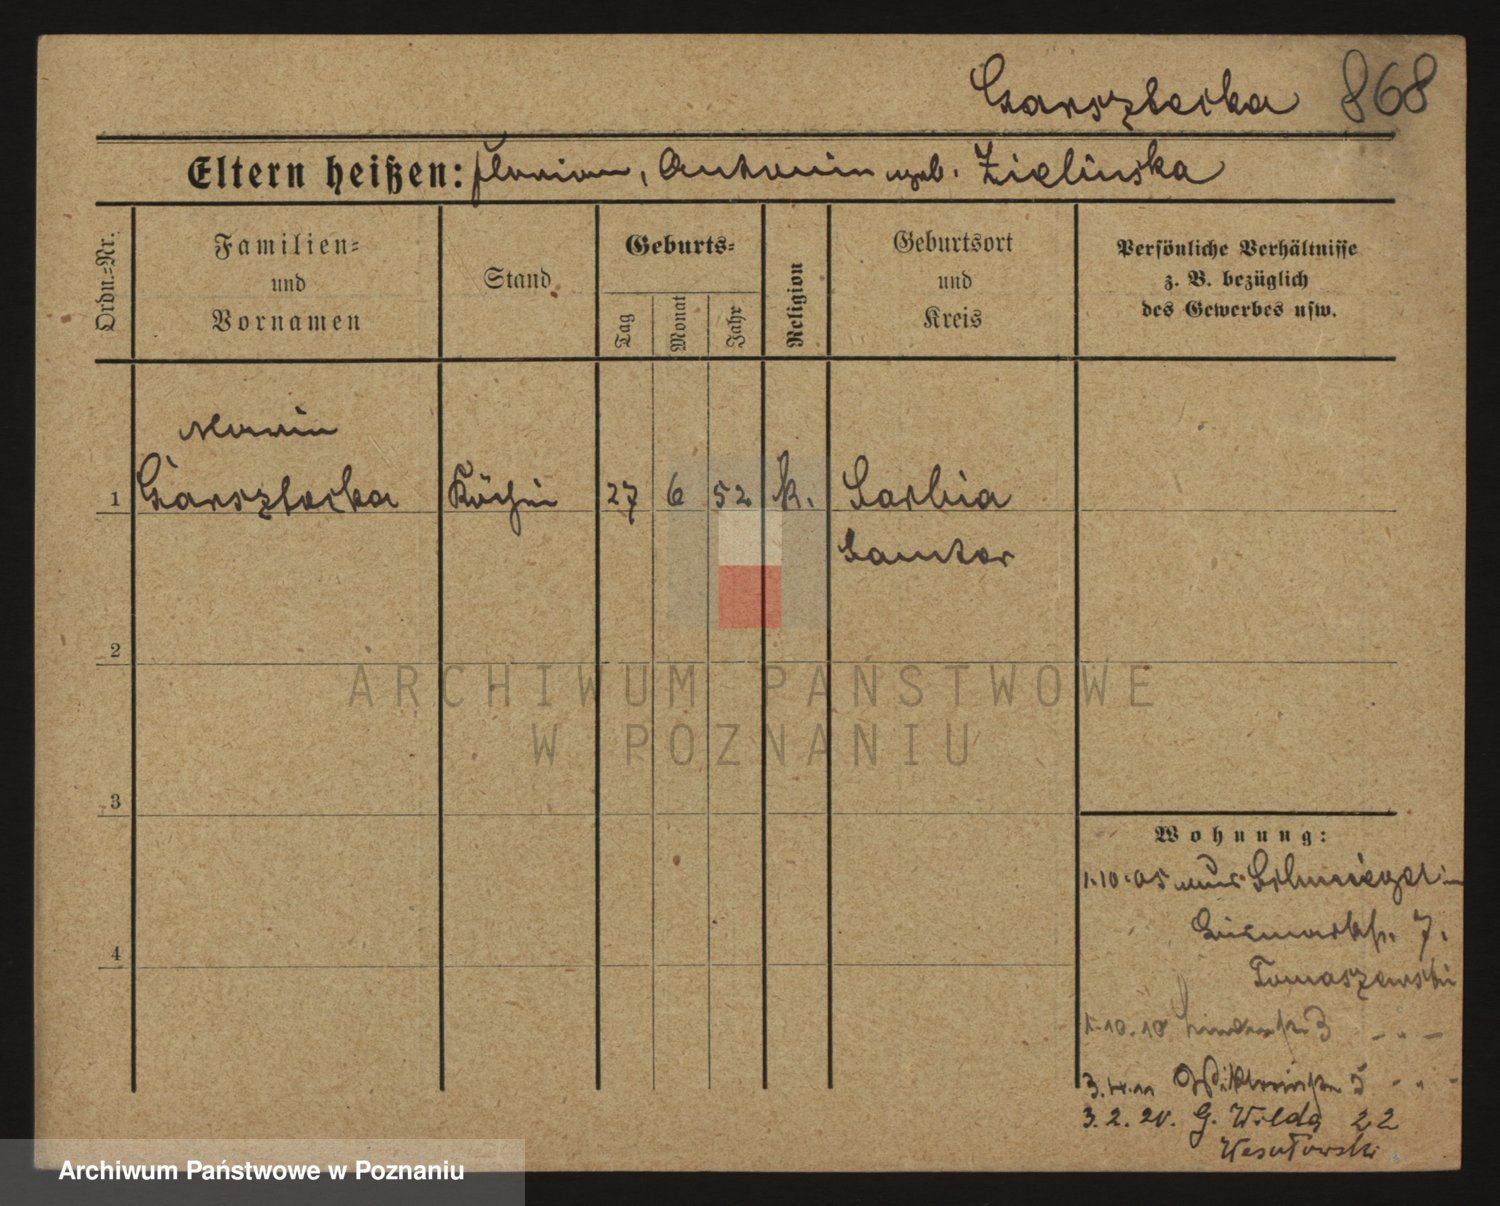 Garsztecka 868
Eltern heißen: Florian, Antonie geb. Zielinska
Ordn.-Nr.
Familien-
und
Vornamen
Stand
Geburts-
Tag
Monat
Jahr
Religion
Geburtsort
und
Kreis
Persönliche Verhältnisse
z. B. bezüglich
des Gewerbes usw.
Marie
1 Garsztecka Köchin 27 6 52 k. Sarbia
Samter
2
ARCHIWUM PAŃSTWOWE
W POZNANIU
3
Wohnung:
1.10.05 aus Schmiegel in
Bismarckstr. 7.
Tomaszewski
1.10.10 3 - " -
3. Viktoriastr. 5 - " -
3.2.20. G. Wilda 22
Wesołowski
4
Archiwum Państwowe w Poznaniu